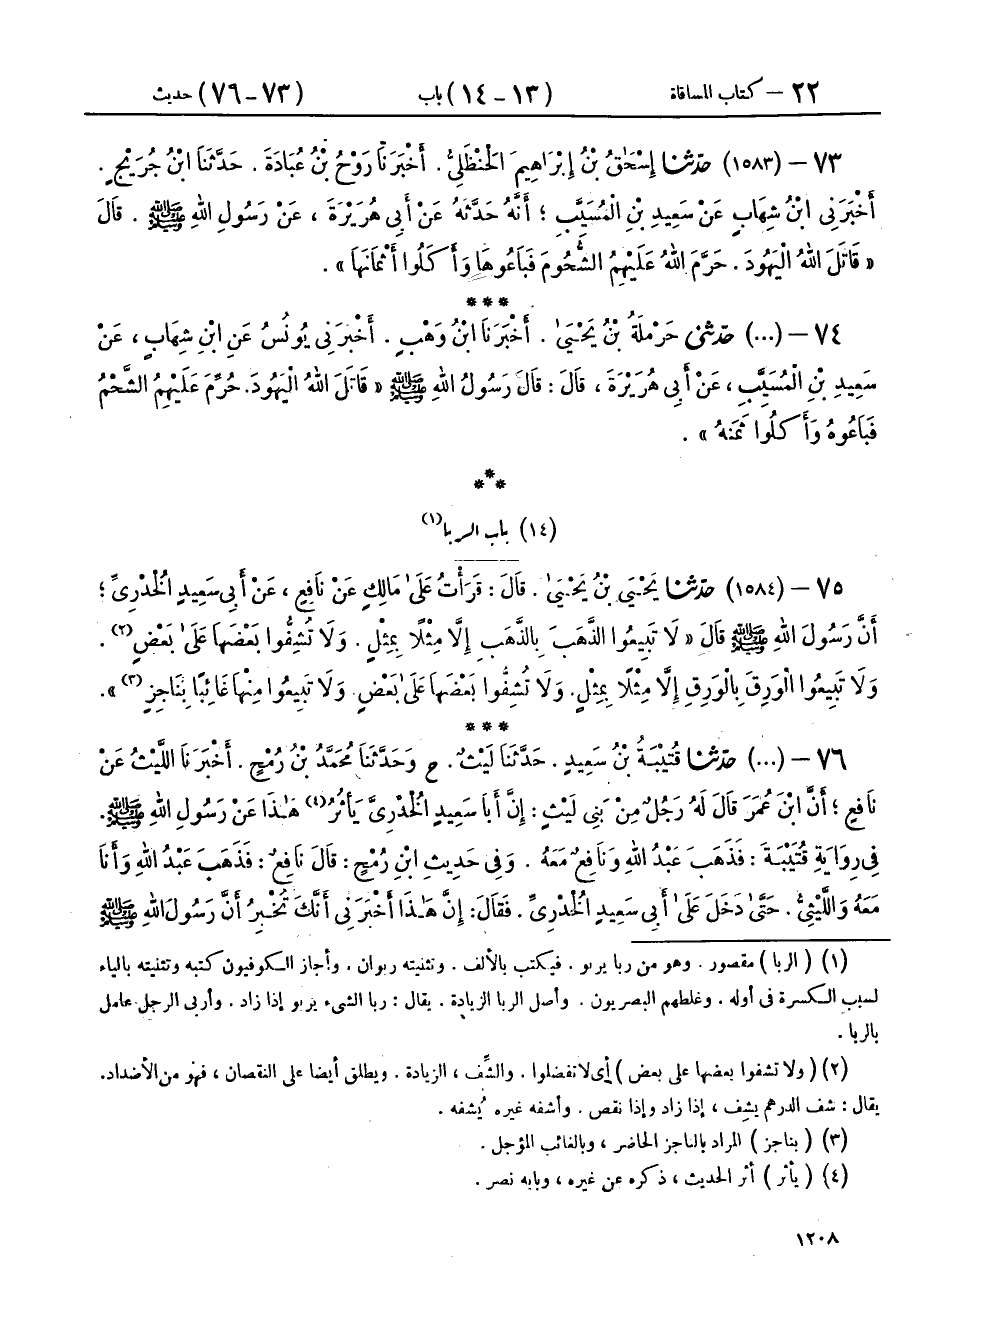 ٢٢ – كتاب المساقاة (١٣ – ١٤) باب (٧٣ – ٧٦) حديث
٧٣ – (١٥٨٣) حدّثنا إِسْحَٰقُ بْنُ إِبْرَاهِيمَ الْحَنْظَلِيُّ . أَخْبَرَنَا رَوْحُ بْنُ عُبَادَةَ . حَدَّثَنَا ابْنُ جُرَيْجٍ .
أَخْبَرَنِي ابْنُ شِهَابٍ عَنْ سَعِيدِ بْنِ الْمُسَيَّبِ ؛ أَنَّهُ حَدَّثَهُ عَنْ أَبِي هُرَيْرَةَ ، عَنْ رَسُولِ اللهِ ﷺ . قَالَ
« قَاتَلَ اللهُ الْيَهُودَ . حَرَّمَ اللهُ عَلَيْهِمُ الشُّحُومَ فَبَاعُوهَا وَأَكَلُوا أَثْمَانَهَا » .
***
٧٤ – (...) حدّثني حَرْمَلَةُ بْنُ يَحْيَىٰ . أَخْبَرَنَا ابْنُ وَهْبٍ . أَخْبَرَنِي يُونُسُ عَنِ ابْنِ شِهَابٍ ، عَنْ
سَعِيدِ بْنِ الْمُسَيَّبِ ، عَنْ أَبِي هُرَيْرَةَ ، قَالَ : قَالَ رَسُولُ اللهِ ﷺ « قَاتَلَ اللهُ الْيَهُودَ. حُرِّمَ عَلَيْهِمُ الشَّحْمُ
فَبَاعُوهُ وَأَكَلُوا ثَمَنَهُ » .
***
(١٤) باب الربا(١)
٧٥ – (١٥٨٤) حدّثنا يَحْيَىٰ بْنُ يَحْيَىٰ . قَالَ : قَرَأْتُ عَلَىٰ مَالِكٍ عَنْ نَافِعٍ ، عَنْ أَبِي سَعِيدٍ الْخُدْرِيِّ ؛
أَنَّ رَسُولَ اللهِ ﷺ قَالَ « لَا تَبِيعُوا الذَّهَبَ بِالذَّهَبِ إِلَّا مِثْلًا بِمِثْلٍ . وَلَا تُشِفُّوا بَعْضَهَا عَلَىٰ بَعْضٍ(٢) .
وَلَا تَبِيعُوا الْوَرِقَ بِالْوَرِقِ إِلَّا مِثْلًا بِمِثْلٍ. وَلَا تُشِفُّوا بَعْضَهَا عَلَىٰ بَعْضٍ. وَلَا تَبِيعُوا مِنْهَا غَائِبًا بِنَاجِزٍ(٣) ».
***
٧٦ – (...) حدّثنا قُتَيْبَةُ بْنُ سَعِيدٍ . حَدَّثَنَا لَيْثٌ . ح وَحَدَّثَنَا مُحَمَّدُ بْنُ رُمْحٍ . أَخْبَرَنَا اللَّيْثُ عَنْ
نَافِعٍ ؛ أَنَّ ابْنَ عُمَرَ قَالَ لَهُ رَجُلٌ مِنْ بَنِي لَيْثٍ : إِنَّ أَبَا سَعِيدٍ الْخُدْرِيَّ يَأْثُرُ(٤) هَٰذَا عَنْ رَسُولِ اللهِ ﷺ.
فِي رِوَايَةِ قُتَيْبَةَ : فَذَهَبَ عَبْدُ اللهِ وَنَافِعٌ مَعَهُ . وَفِي حَدِيثِ ابْنِ رُمْحٍ : قَالَ نَافِعٌ : فَذَهَبَ عَبْدُ اللهِ وَأَنَا
مَعَهُ وَاللَّيْثِيُّ . حَتَّىٰ دَخَلَ عَلَىٰ أَبِي سَعِيدٍ الْخُدْرِيِّ . فَقَالَ: إِنَّ هَٰذَا أَخْبَرَنِي أَنَّكَ تُخْبِرُ أَنَّ رَسُولَ اللهِ ﷺ
(١) ( الربا ) مقصور . وهو من ربا يربو . فيكتب بالألف . وتثنيته ربوان . وأجاز الكوفيون كتبه وتثنيته بالياء
لسبب الكسرة فى أوله . وغلطهم البصريون . وأصل الربا الزيادة . يقال : ربا الشىء يربو إذا زاد . وأربى الرجل عامل
بالربا .
(٢) ( ولا تشفوا بعضها على بعض ) أى لا تفضلوا . والشِّف ، الزيادة . ويطلق أيضا على النقصان ، فهو من الأضداد.
يقال : شف الدرهم يشِف ، إذا زاد وإذا نقص . وأشفه غيره يُشفه .
(٣) ( بناجز ) المراد بالناجز الحاضر ، وبالغائب المؤجل .
(٤) ( يأثر ) أثر الحديث ، ذكره عن غيره ، وبابه نصر .
١٢٠٨